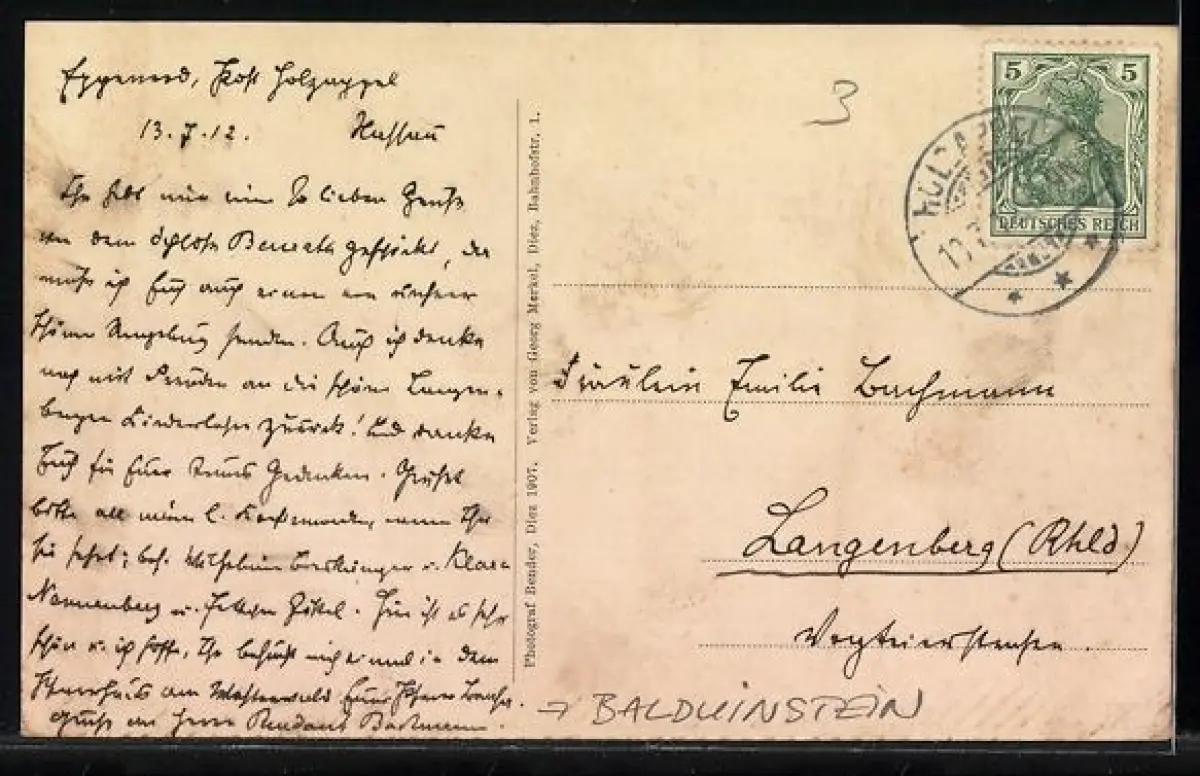 Eppenrod, Post Holzappel
13.7.12. Nassau
Ihr habt mir einen so lieben Gruß
von dem Schlosse Benrath geschickt, da
muß ich Euch auch einen von unserer
schönen Umgebung senden. Auch ich denke
noch mit Freuden an die schönen Langen-
berger Kinderlehre zurück! Und danke
Euch für Euer treues Gedenken. Grüßet
bitte all meine l. Konfirmanden, wenn Ihr
sie sehet; bes. Wilhelmine u. Klara
Nonnenberg u. Hier ist es sehr
schön u. ich hoffe, Ihr besucht mich einmal in dem
Pfarrhaus am Westerwald
Gruß an Herrn Rendant Bachmann.
Photograf Bender, Diez 1907. Verlag von Georg Merkel, Diez, Bahnhofstr. 1.
3
5 5
DEUTSCHES REICH
HOLZAPPEL
Fräulein Emilie Bachmann
Langenberg (Rhld)
Vogteierstraße.
→ BALDUINSTEIN